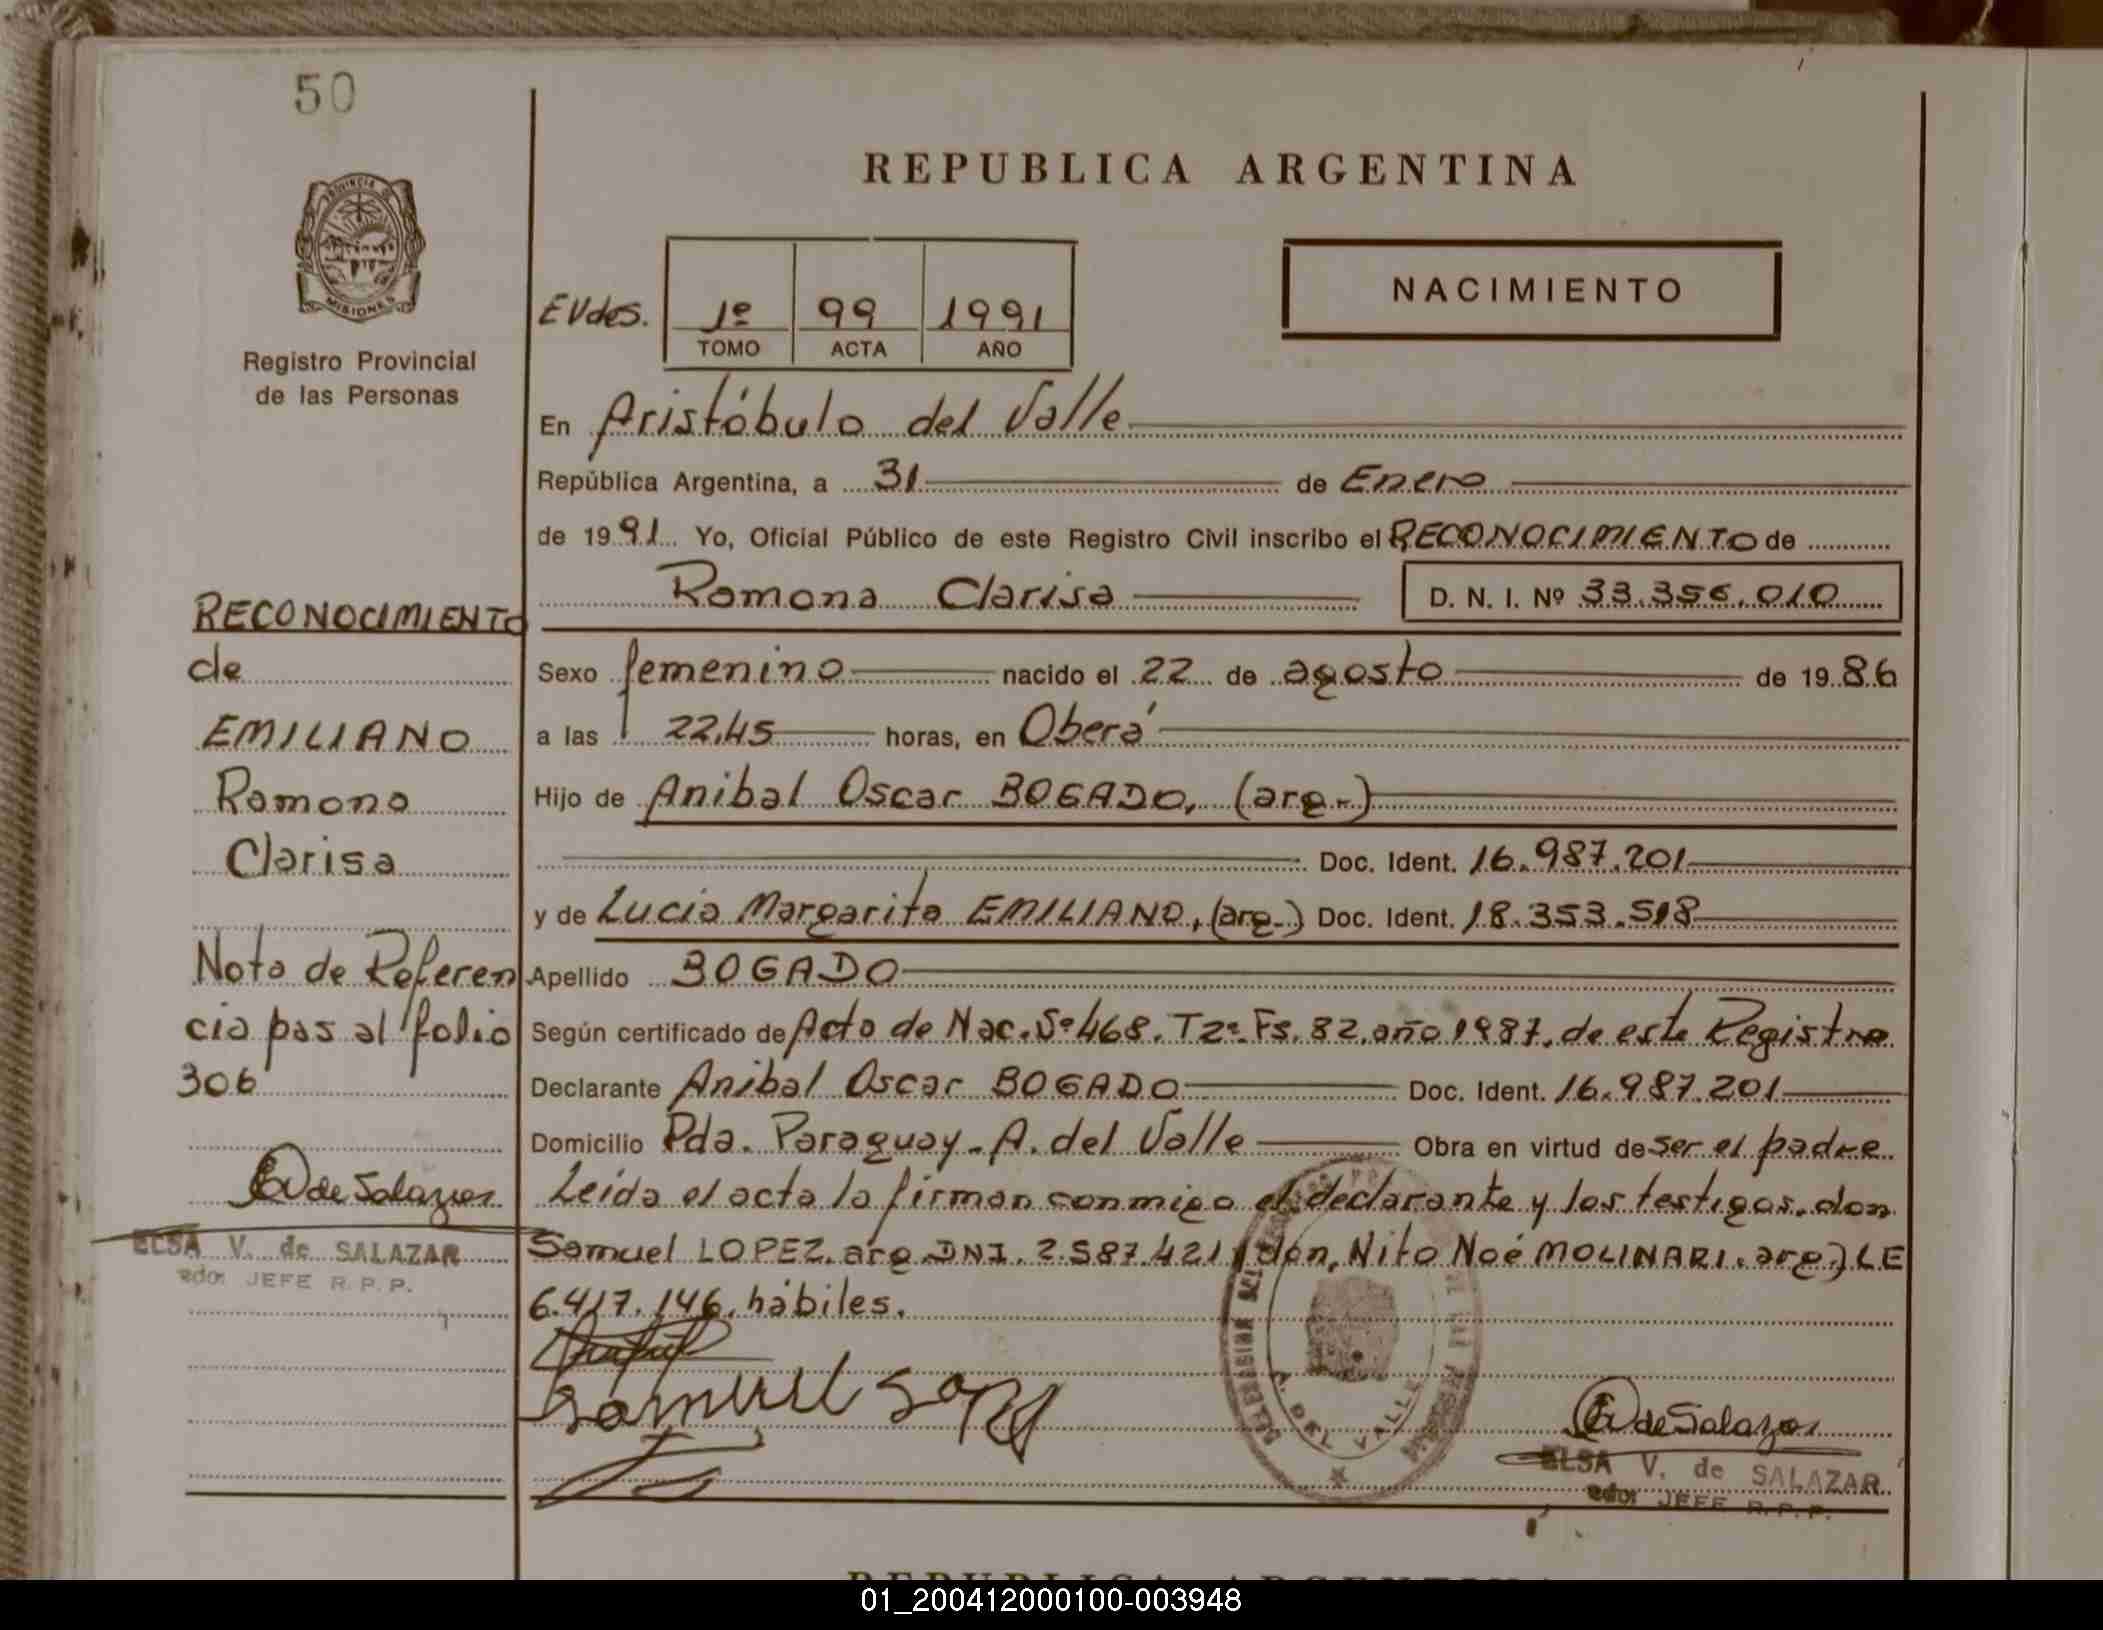 50
REPUBLICA ARGENTINA
PROVINCIA DE
MISIONES
Registro Provincial
de las Personas
EVdes.
1º 99 1991
TOMO ACTA AÑO
NACIMIENTO
En Aristóbulo del Valle
República Argentina, a 31 de Enero
de 1991 Yo, Oficial Público de este Registro Civil inscribo el RECONOCIMIENTO de
Ramona Clarisa D. N. I. Nº 33.356.010
Sexo femenino nacido el 22 de agosto de 1986
a las 22,45 horas, en Oberá
Hijo de Anibal Oscar BOGADO, (arg.)
Doc. Ident. 16.987.201
y de Lucia Margarita EMILIANO, (arg.) Doc. Ident. 18.353.518
Apellido BOGADO
Según certificado de Acta de Nac. Sº 468. T2º Fs. 82. año 1987. de este Registro
Declarante Anibal Oscar BOGADO Doc. Ident. 16.987.201
Domicilio Pda. Paraguay - A. del Valle Obra en virtud de ser el padre
Leída el acta la firman conmigo el declarante y los testigos. don
Samuel LOPEZ. arg. DNI. 2.587.421 y don, Nito Noé MOLINARI. arg.) LE
6.417.146. hábiles.
RECONOCIMIENTO
de
EMILIANO
Ramona
Clarisa
Nota de Referen
cia pas al folio
306
de Salazar
ELSA V. de SALAZAR
JEFE R.P.P.
Samuel
DEL VALLE
de Salazar
ELSA V. de SALAZAR
JEFE R.P.P.
REPUBLICA ARGENTINA
01_200412000100-003948